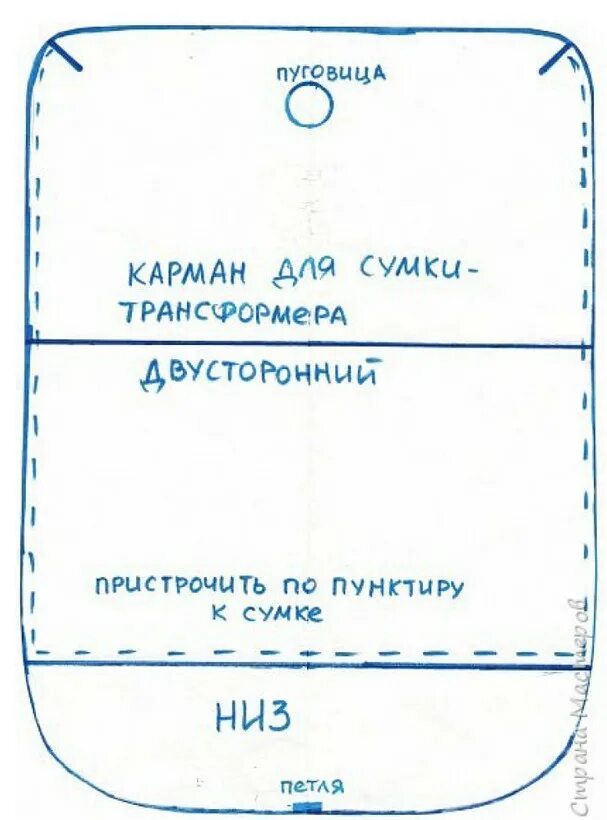 ПУГОВИЦА
КАРМАН ДЛЯ СУМКИ-
ТРАНСФОРМЕРА
ДВУСТОРОННИЙ
ПРИСТРОЧИТЬ ПО ПУНКТИРУ
К СУМКЕ
НИЗ
ПЕТЛЯ
Страна Мастеров